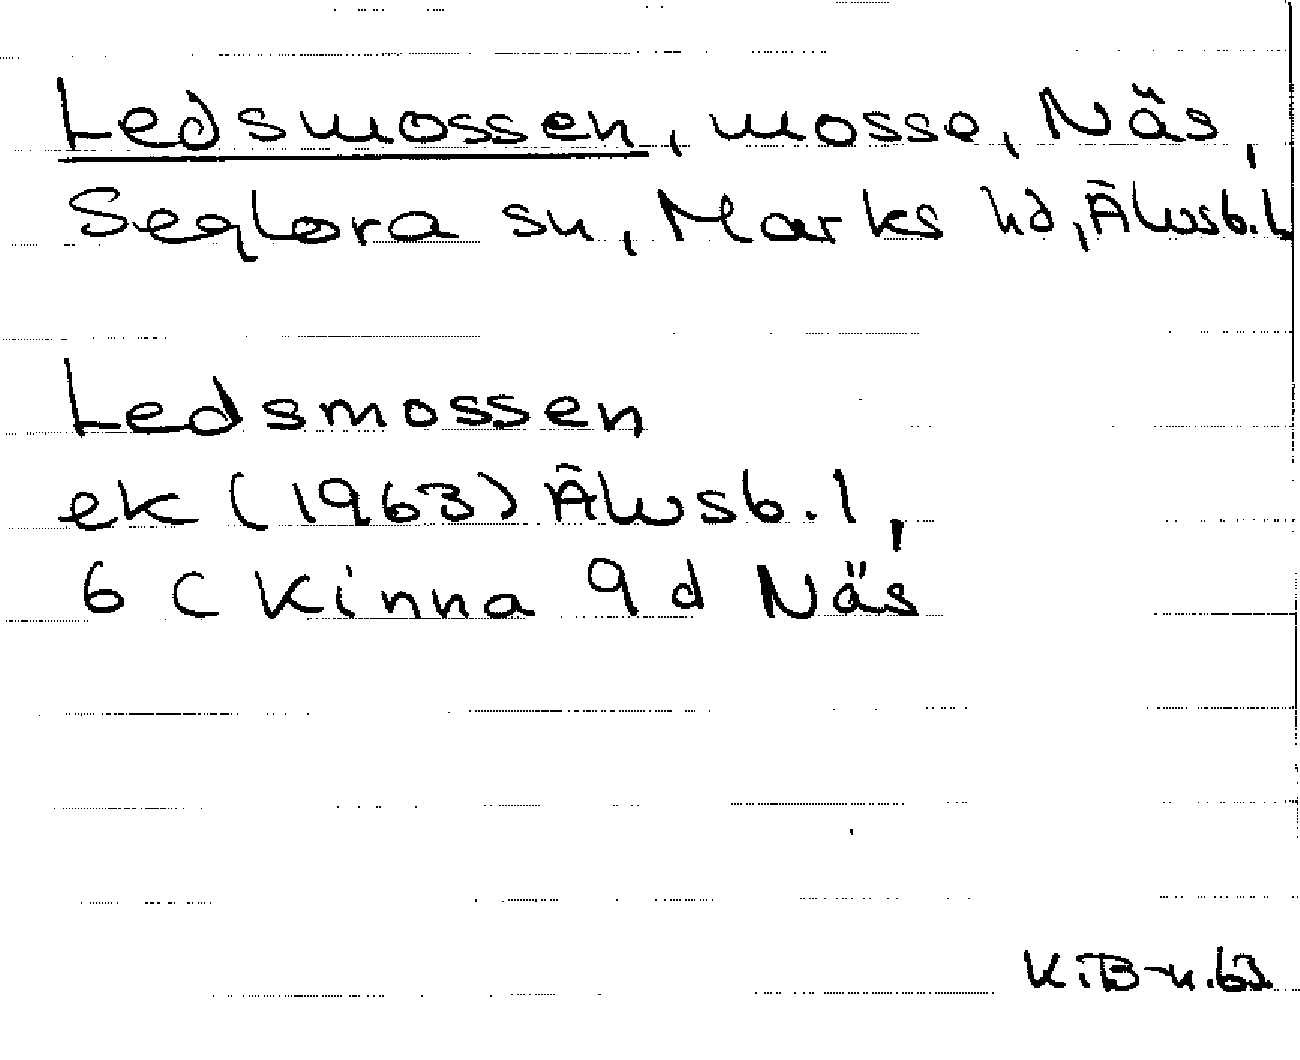 Ledsmossen, mosse, Näs,
Seglora sn, Marks hd, Älvsb.l
Ledsmossen
ek (1963) Älvsb.l,
6 C Kinna 9 d Näs